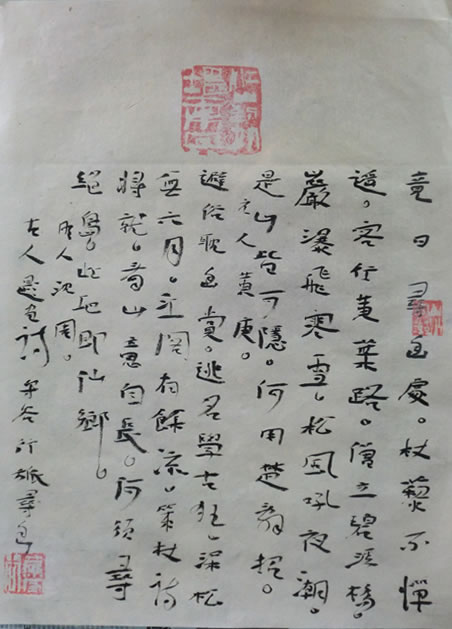 竟日尋幽處。杖藜不憚
遥。客行黄葉路。僧立碧溪橋。
巖瀑飛寒雪。松風吼夜潮。
是山皆可隱。何用楚辭招。
元人黄庚。
避俗耽幽賞。逃名學古狂。深松
無六月。空閣有餘涼。策杖詩
將就。看山意自長。何須尋
絕島。此地即仙鄉。
明人沈周。
古人題畫詩